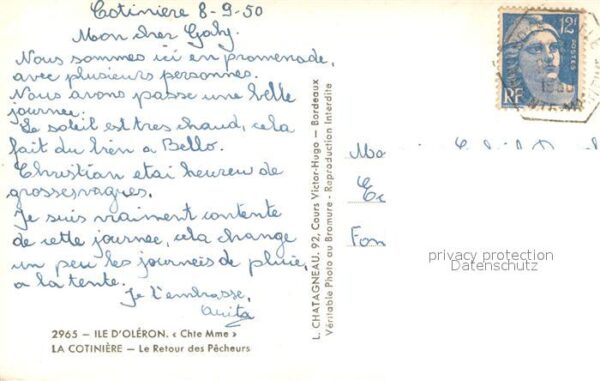 Cotinière 8-9-50
Mon cher Gaby.
Nous sommes ici en promenade,
avec plusieurs personnes.
Nous avons passe une belle
journee.
Le soleil est tres chaud, cela
fait du bien a Bello.
Christian etai heureu de
grosses vagues.
Je suis vraiment contente
de cette journee, cela change
un peu les journeés de pluie,
a la tente.
Je t'embrasse,
Anita
2965 - ILE D'OLÉRON. « Chte Mme »
LA COTINIÈRE - Le Retour des Pêcheurs
L. CHATAGNEAU. 92, Cours Victor-Hugo - Bordeaux
Véritable Photo au Bromure - Reproduction Interdite
12F
POSTES
RF
1950
Fon
privacy protection
Datenschutz